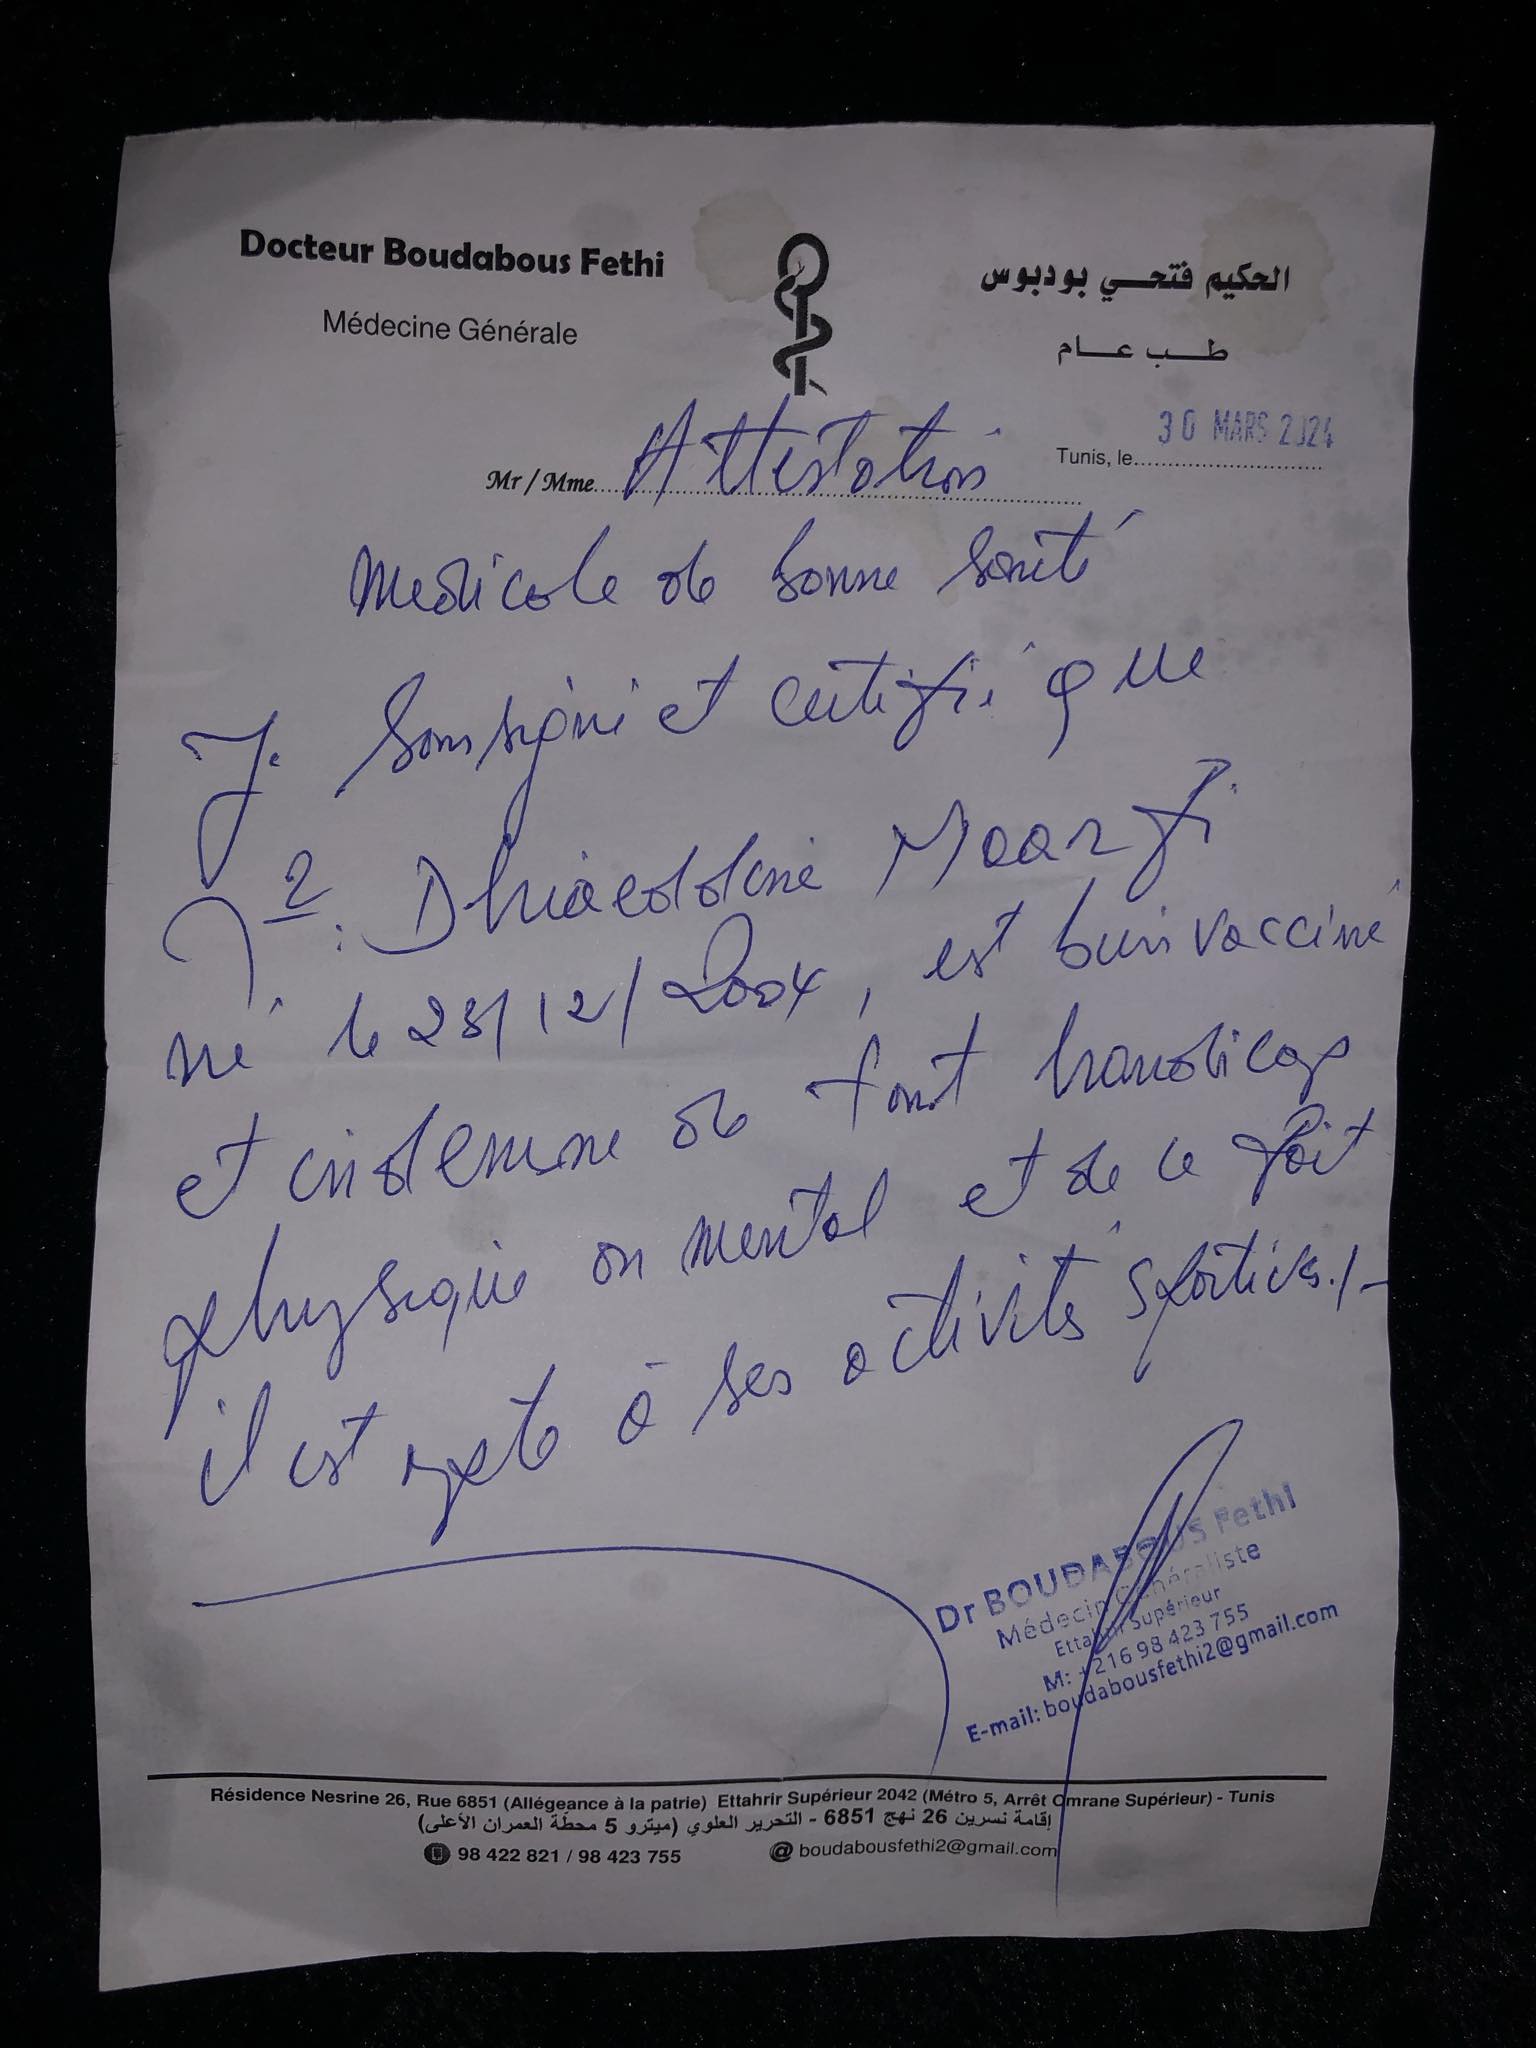 Docteur Boudabous Fethi
Médecine Générale
الحكيم فتحي بودبوس
طب عام
30 MARS 2024
Tunis, le
Mr / Mme Attestation
Medicale de bonne santé
Je soussigné et certifié que
Mr : Dhiaeddine Maarfi
né le 23/12/2004, est bien vacciné
et indemne de tout handicap
physique ou mental et de ce fait
il est apte à ses activités sportives./-
Dr BOUDABOUS FethI
Médecin Généraliste
Ettahrir Supérieur
M: +216 98 423 755
E-mail: boudabousfethi2@gmail.com
Résidence Nesrine 26, Rue 6851 (Allégeance à la patrie) Ettahrir Supérieur 2042 (Métro 5, Arrêt Omrane Supérieur) - Tunis
إقامة نسرين 26 نهج 6851 - التحرير العلوي (ميترو 5 محطة العمران الأعلى)
98 422 821 / 98 423 755
@ boudabousfethi2@gmail.com